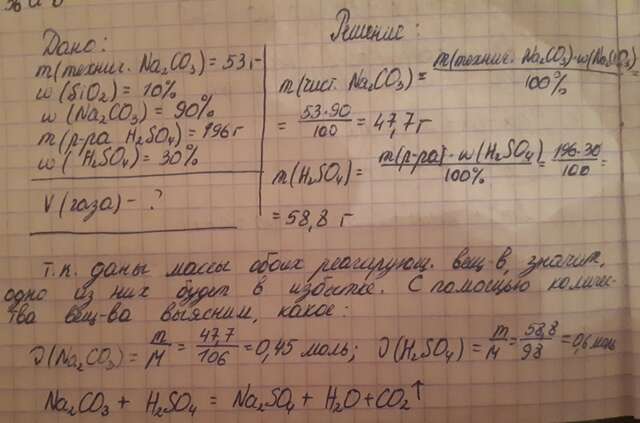 Дано:
m(технич. Na₂CO₃) = 53 г
w (SiO₂) = 10%
w (Na₂CO₃) = 90%
m(р-ра H₂SO₄) = 196 г
w ( H₂SO₄) = 30%
V (газа) - ?
Решение:
m(чист. Na₂CO₃) = m(технич. Na₂CO₃)·w(Na₂CO₃) / 100% =
= 53·90 / 100 = 47,7 г
m(H₂SO₄) = m(р-ра)·w(H₂SO₄) / 100% = 196·30 / 100 =
= 58,8 г
т.к. даны массы обоих реагирующ. вещ-в, значит,
одно из них будет в избытке. С помощью количес-
тва вещ-ва выясним, какое:
υ(Na₂CO₃) = m / M = 47,7 / 106 = 0,45 моль; υ(H₂SO₄) = m / M = 58,8 / 98 = 0,6 моль
Na₂CO₃ + H₂SO₄ = Na₂SO₄ + H₂O + CO₂↑